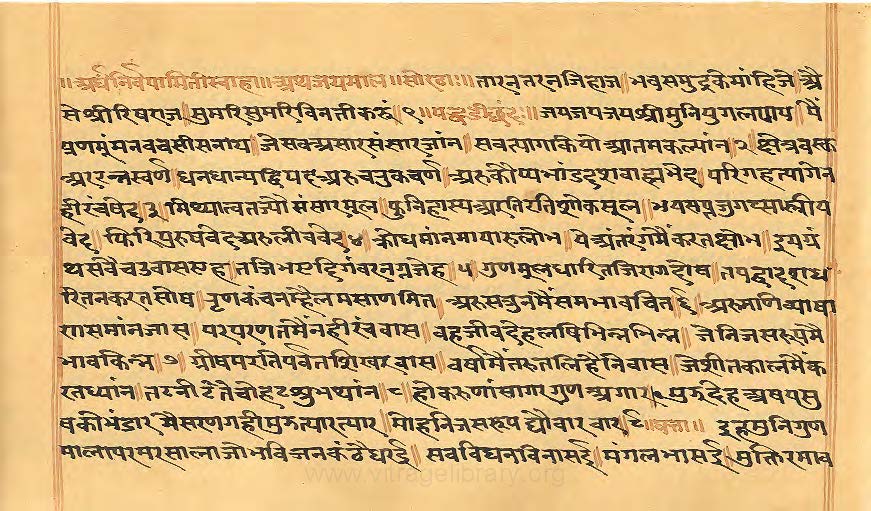 ॥अर्घनिर्वपामितीस्वाहा॥अथजयमाल॥सोरठाः॥तारनतरनजिहाज॥भवसमुद्रकेमांहिजे॥अै
सेश्रीरिषराज॥सुमरिसुमरिविनतीकरुं॥१॥पद्धडीछंदः॥जयजयजयश्रीमुनियुगलपाय॥मैं
प्रणमुंमनवचसीसनाय॥जेसबअसारसंसारजांन॥सबत्यागकियोआतमकल्यांन॥२॥क्षेत्रवस्त
अररत्नस्वर्ण॥धनधान्यद्विपदअरुचतुकचर्ण॥अरुकौप्यभांडदशबाह्यभेद॥परिगहत्यागेन
हीरंचषेद॥३॥मिथ्यात्वतज्योसंसारमूल॥फुनिहास्यअरतिरतिशोकसूल॥भयसप्तजुगप्सास्त्रीय
वेद॥फिरिपुरुषवेदअरुक्लीववेद॥४॥क्रोधमांनमायारुलोभ॥येअंतरंगमैंकरतक्षोभ॥इमग्रं
थसबैचउवीसएह॥तजिभएदिगंबरनग्नजेह॥५॥गुणमूलधारितजिरागदोष॥तपद्वादशध
रितनकरतसोष॥तृणकंचनमहैलमसाणमित॥अरुसत्रुनमैंसमभावचित॥६॥अरुमणिपाषा
णसमांनजास॥परपरणतमैंनहीरंचवास॥वहजीवदेहलषिभिन्नभिन्न॥जेनिजसरूपमै
भावकिन्न॥७॥ग्रीषमरतिपर्वतशिखरवास॥वर्षामैंतरुतलिहैनिवास॥जेशीतकालमैंक
रतध्यांन॥तटनीटतैचोहटशुभथांन॥८॥होकरुणांसागरगुणअगार॥मुझदेहअषयसु
षकोभंडार॥मैसरणगहीमुझत्यारत्यार॥मोहनिजसरूपद्यौवारवार॥९॥घत्ता॥इहमुनिगुण
मालापरमरसालाजोभविजनकंठैधरई॥सबविघनविनासई॥मंगलभासई॥मुक्तिरमाव
www.vitragelibrary.org